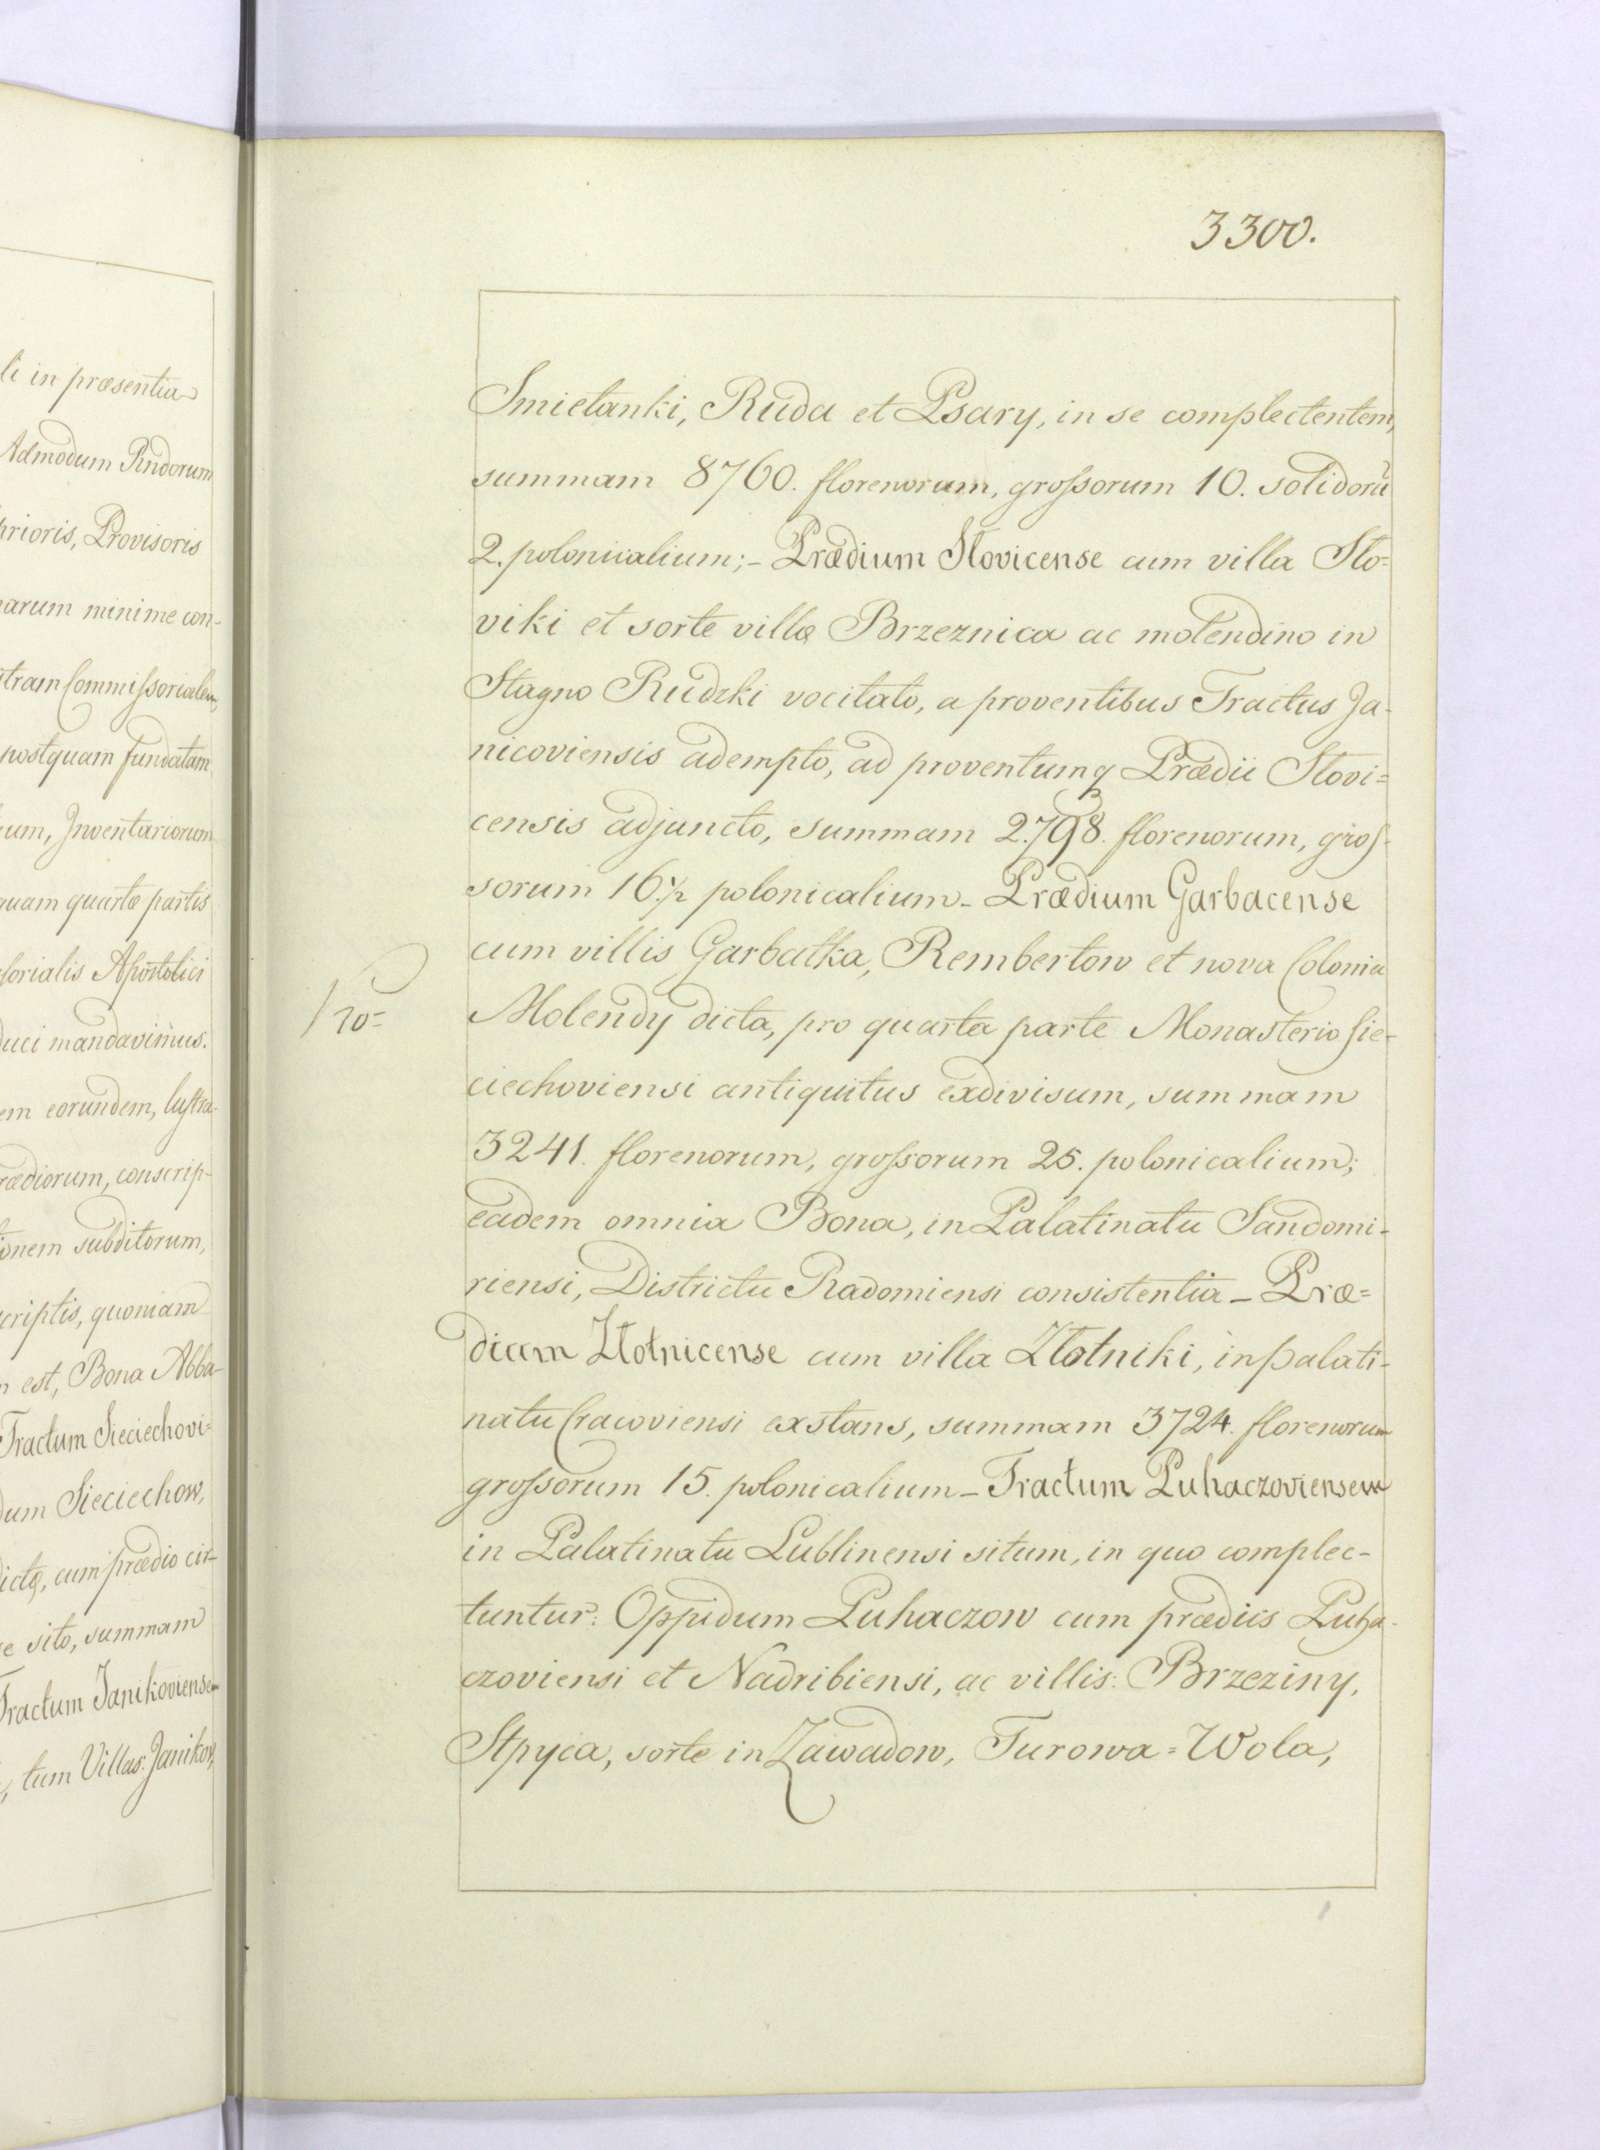 li in præsentia
Admodum Rndorum
prioris, Provisoris
narum minime con-
stram Commissorialem,
postquam fundatam
ium, Inventariorum
quam quartæ partis
sorialis Apostolici
duci mandavimus.
em eorundem, lustra-
rædiorum, conscrip-
ionem subditorum,
criptis, quoniam
n est, Bona Abba-
Tractum Sieciechovi=
dum Sieciechow,
dictæ, cum prædio cir-
re sito, summam
Tractum Janikoviensem
, tum Villas: Janikow,
3300.
Smietanki, Ruda et Psary, in se complectentem,
summam 8760. florenorum, grossorum 10. solidorũ
2. polonicalium;- Prædium Stovicense cum villa Sto=
viki et sorte villæ Brzeznica ac molendino in
Stagno Rudzki vocitato, a proventibus Tractus Ja-
nicoviensis adempto, ad proventumq Prædii Stovi=
censis adjuncto, summam 2.798. florenorum, gros-
sorum 16½ polonicalium- Prædium Garbacense
cum villis Garbatka, Rembertow et nova Colonia
Molendy dicta, pro quarta parte Monasterio Sie-
ciechoviensi antiquitus exdivisum, summam
3241. florenorum, grossorum 25. polonicalium;
eadem omnia Bona, in Palatinatu Sandomi-
riensi, Districtu Radomiensi consistentia - Præ=
dium Złotnicense cum villa Złotniki, in palati-
natu Cracoviensi exstans, summam 3724. florenorum
grossorum 15. polonicalium - Tractum Puhaczoviensem
in Palatinatu Lublinensi situm, in quo complec-
tuntur: Oppidum Puhaczow cum prædiis Puha-
czoviensi et Nadribiensi, ac villis: Brzeziny,
Stpyca, sorte in Zawadow, Turowa=Wola,